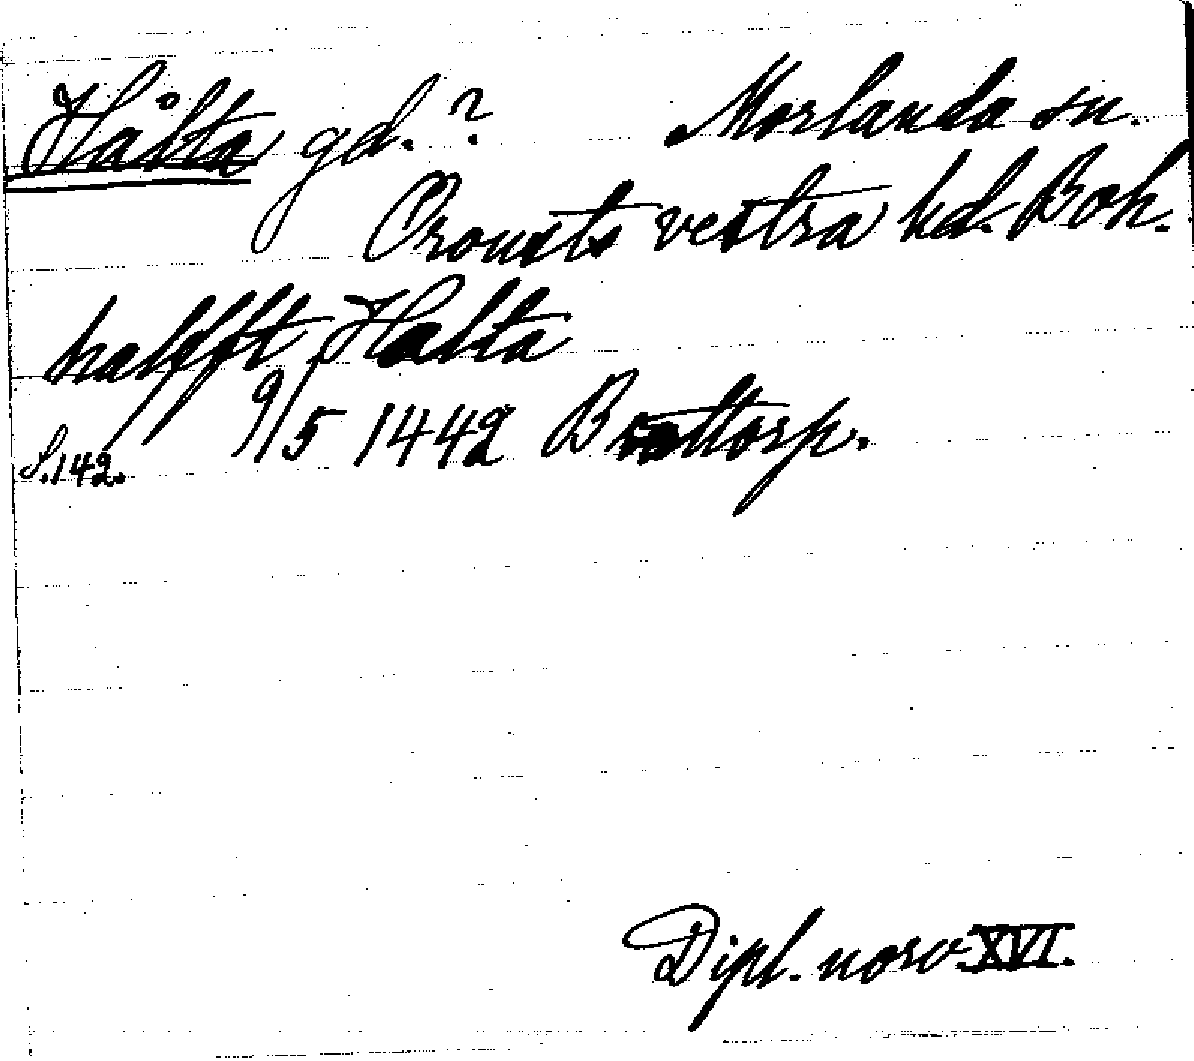 Hålta gd.? Morlanda sn.
Orousts vestra hd. Boh.
halfft Halta
9/5 1442 Brottorp.
S.142.
Dipl. norv XVI.